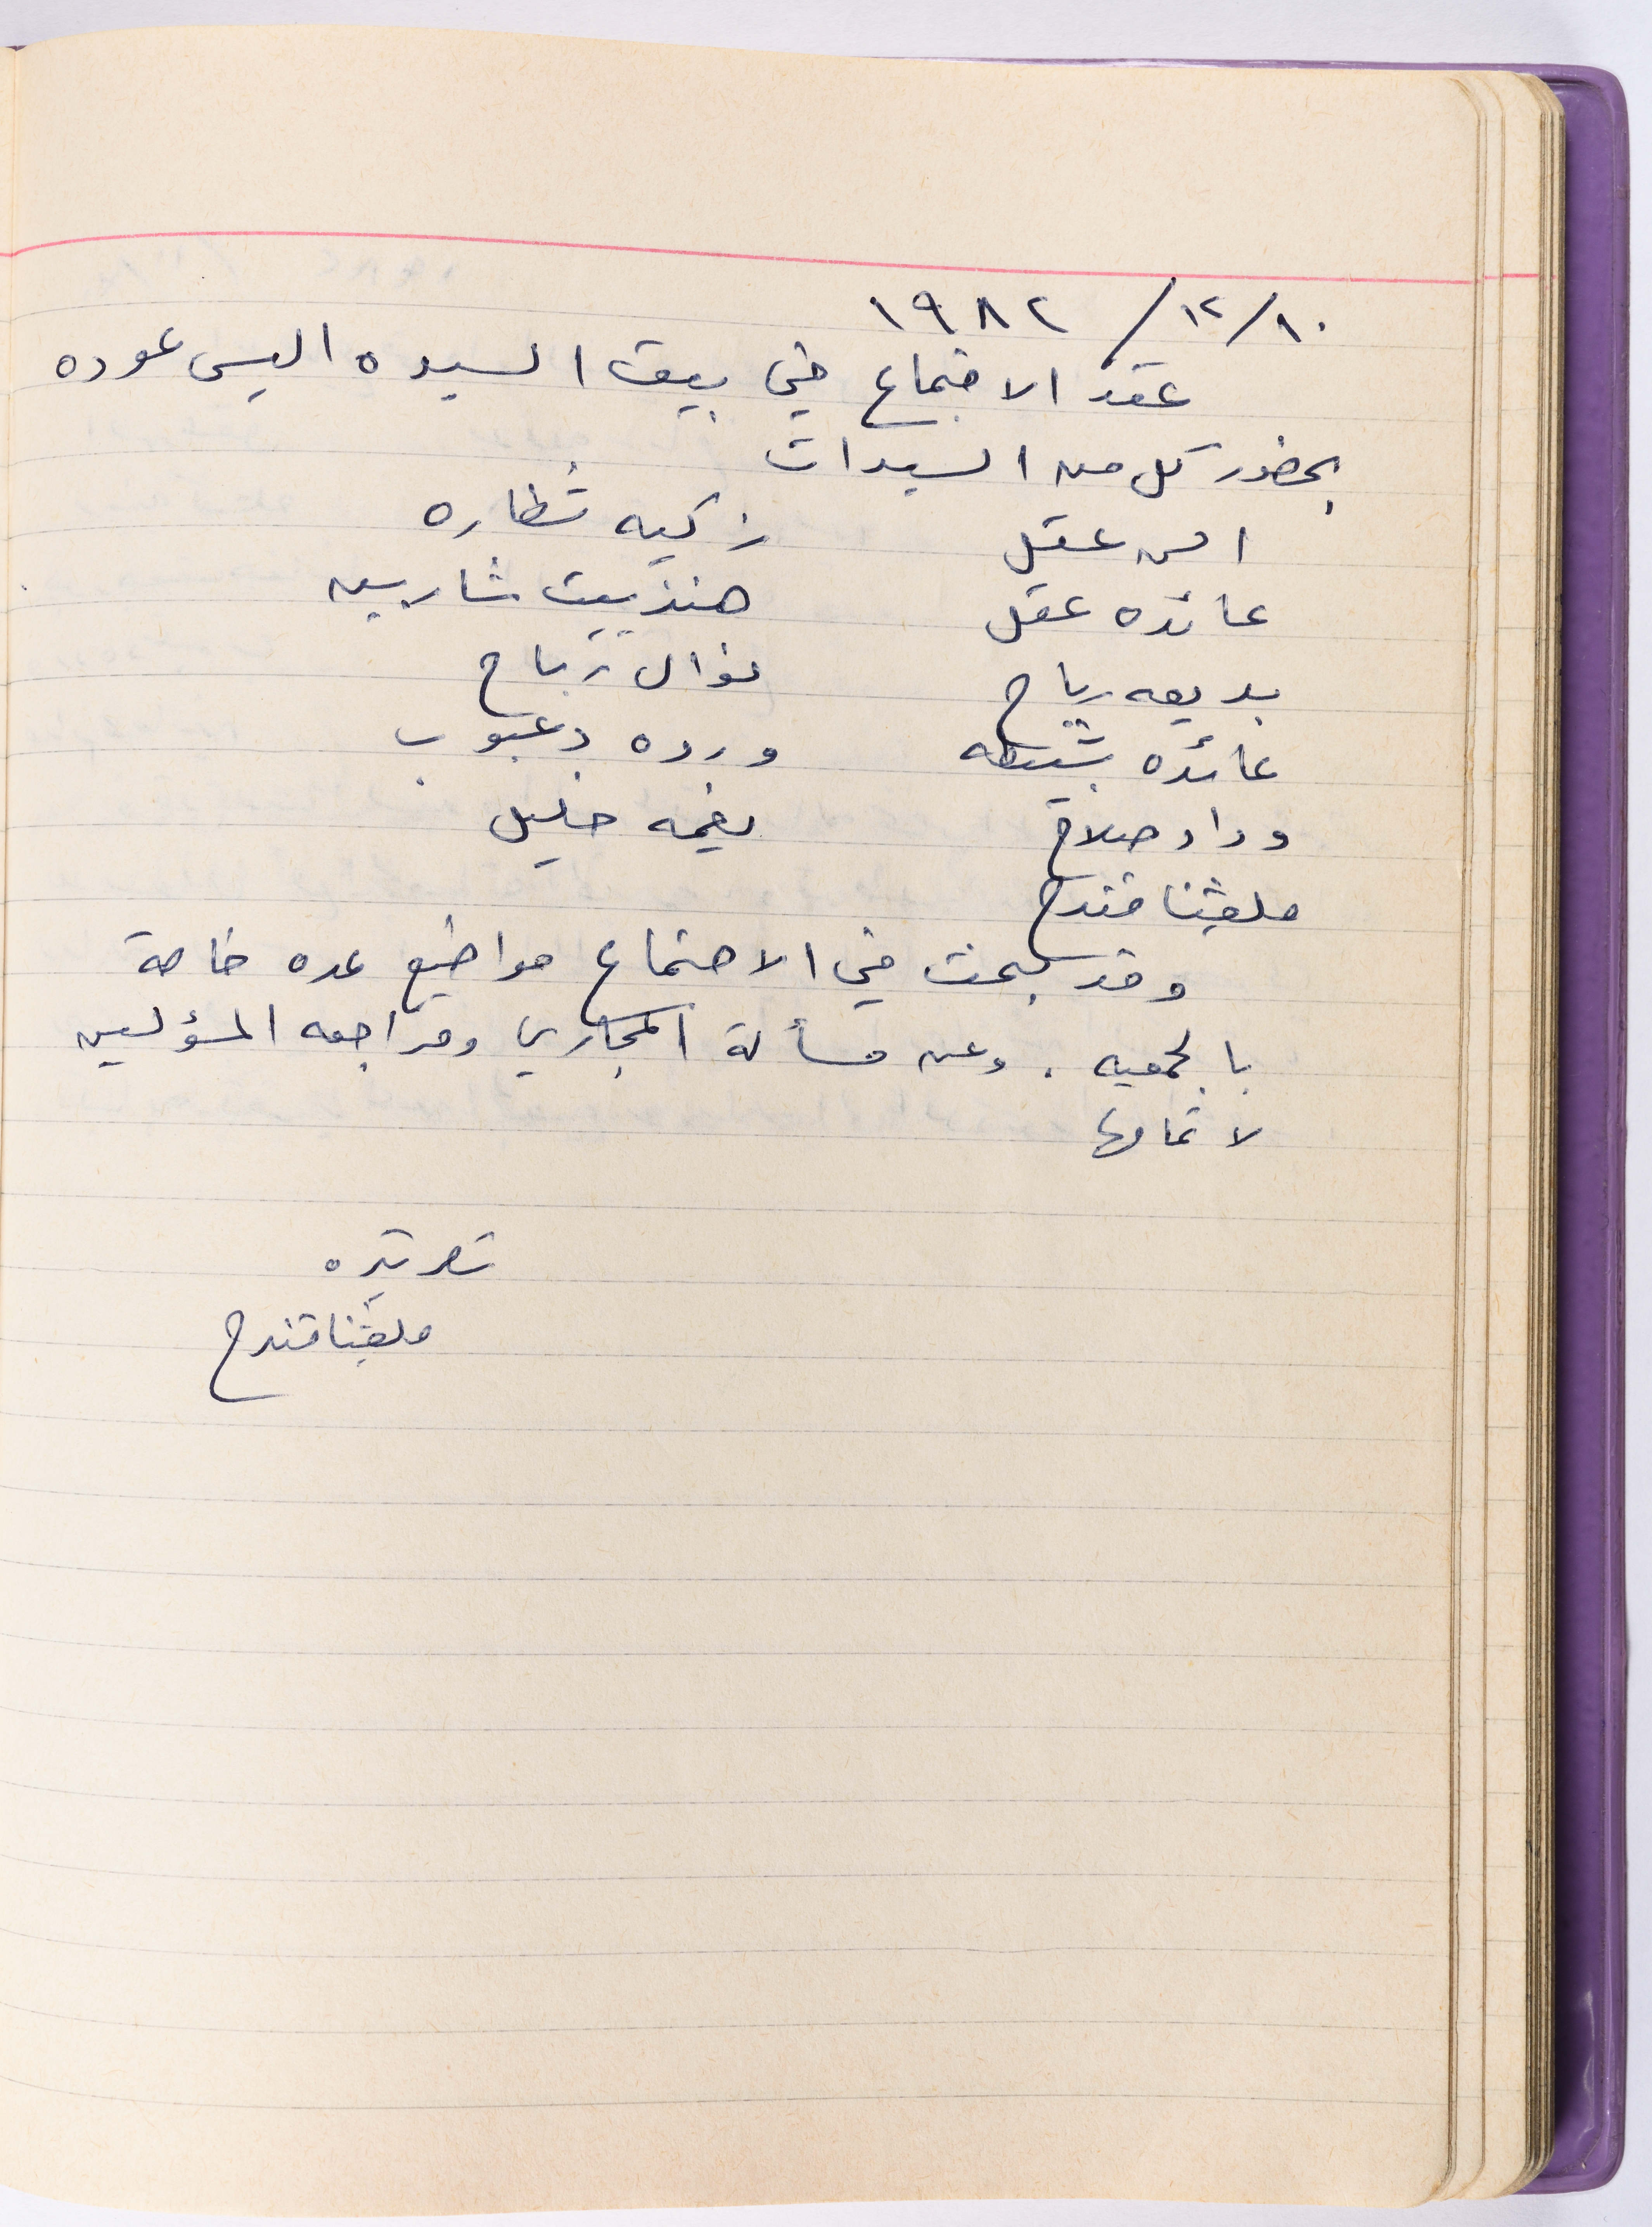 ١٠/ ١٢/ ١٩٨٢
عقد الاجتماع في بيت السيده اليس عوده
بحضور كل من السيدات
الس عقل زكيه شطاره
عائده عقل هنرييت شاربين
بديعه رباح نوال رباح
عائده بشيطه ورده دعبوب
وداد صلاح نعيمه خليل
ملفينا قندح
وقد بحث في الاجتماع مواضيع عده خاصة
بالجمعيه . وعن مسألة المجاري ومراجعه المسؤلين
لاتمامها
سكرتيره
ملفينا قندح